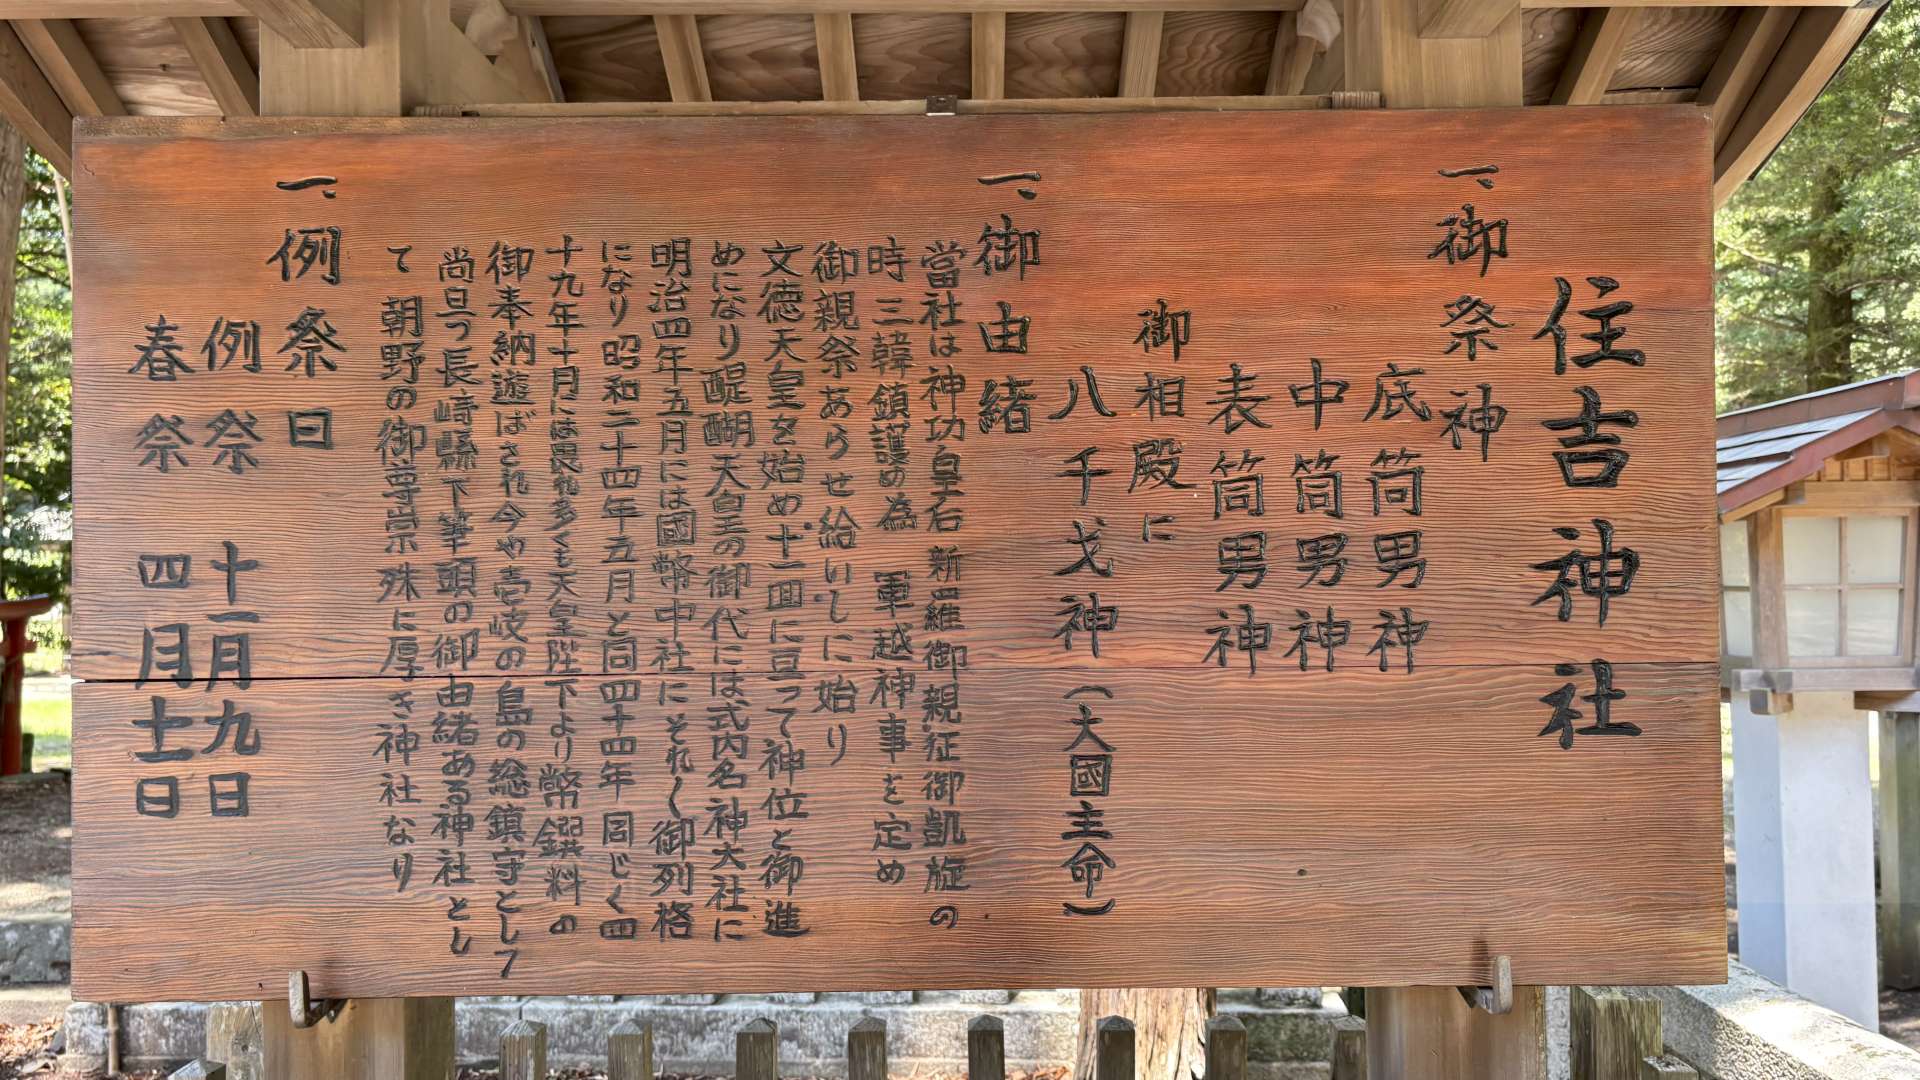 住吉神社
一、御祭神
底筒男神
中筒男神
表筒男神
御相殿に
八千戈神（大國主命）
一、御由緒
當社は神功皇后 新羅御親征御凱旋の
時 三韓鎮護の為 軍越神事を定め
御親祭あらせ給いしに始り
文徳天皇を始め十一回に亘って神位と御進
めになり醍醐天皇の御代には式内名神大社に
明治四年五月には國幣中社にそれ〱御列格
になり昭和二十四年五月と同四十四年 同じく四
十九年十月には畏れ多くも天皇陛下より幣饌料の
御奉納遊ばされ今や壱岐の島の総鎮守としフ
尚旦つ長崎縣下筆頭の御由緒ある神社とし
て 朝野の御尊崇殊に厚き神社なり
一、例祭日
例祭 十一月九日
春祭 四月十一日